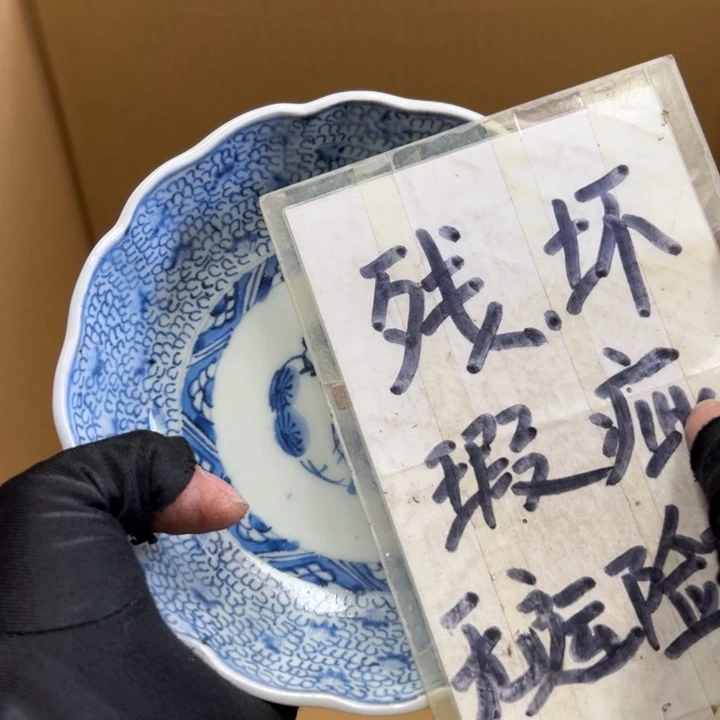 残.坏
瑕疵
无运险